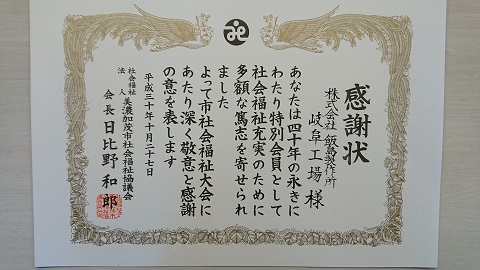 感謝状
株式会社 飯島製作所
岐阜工場 様
あなたは四十年の永きに
わたり特別会員として
社会福祉充実のために
多額な篤志を寄せられ
ました
よって市社会福祉大会に
あたり深く敬意と感謝
の意を表します
平成三十年十月二十七日
社会福祉法人 美濃加茂市社会福祉協議会
会長 日比野和郎